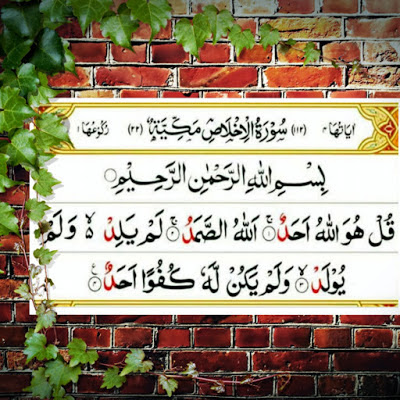 اٰيَاتُهَا ٤ (١١٢) سُوْرَةُ الْاِخْلَاصِ مَكِّيَّةٌ (٢٢) رُكُوْعُهَا ١
بِسْمِ اللّٰهِ الرَّحْمٰنِ الرَّحِيْمِ
قُلْ هُوَ اللّٰهُ اَحَدٌ ۚ اَللّٰهُ الصَّمَدُ ۚ لَمْ يَلِدْ ۙ وَلَمْ
يُوْلَدْ ۙ وَلَمْ يَكُنْ لَّهٗ كُفُوًا اَحَدٌ